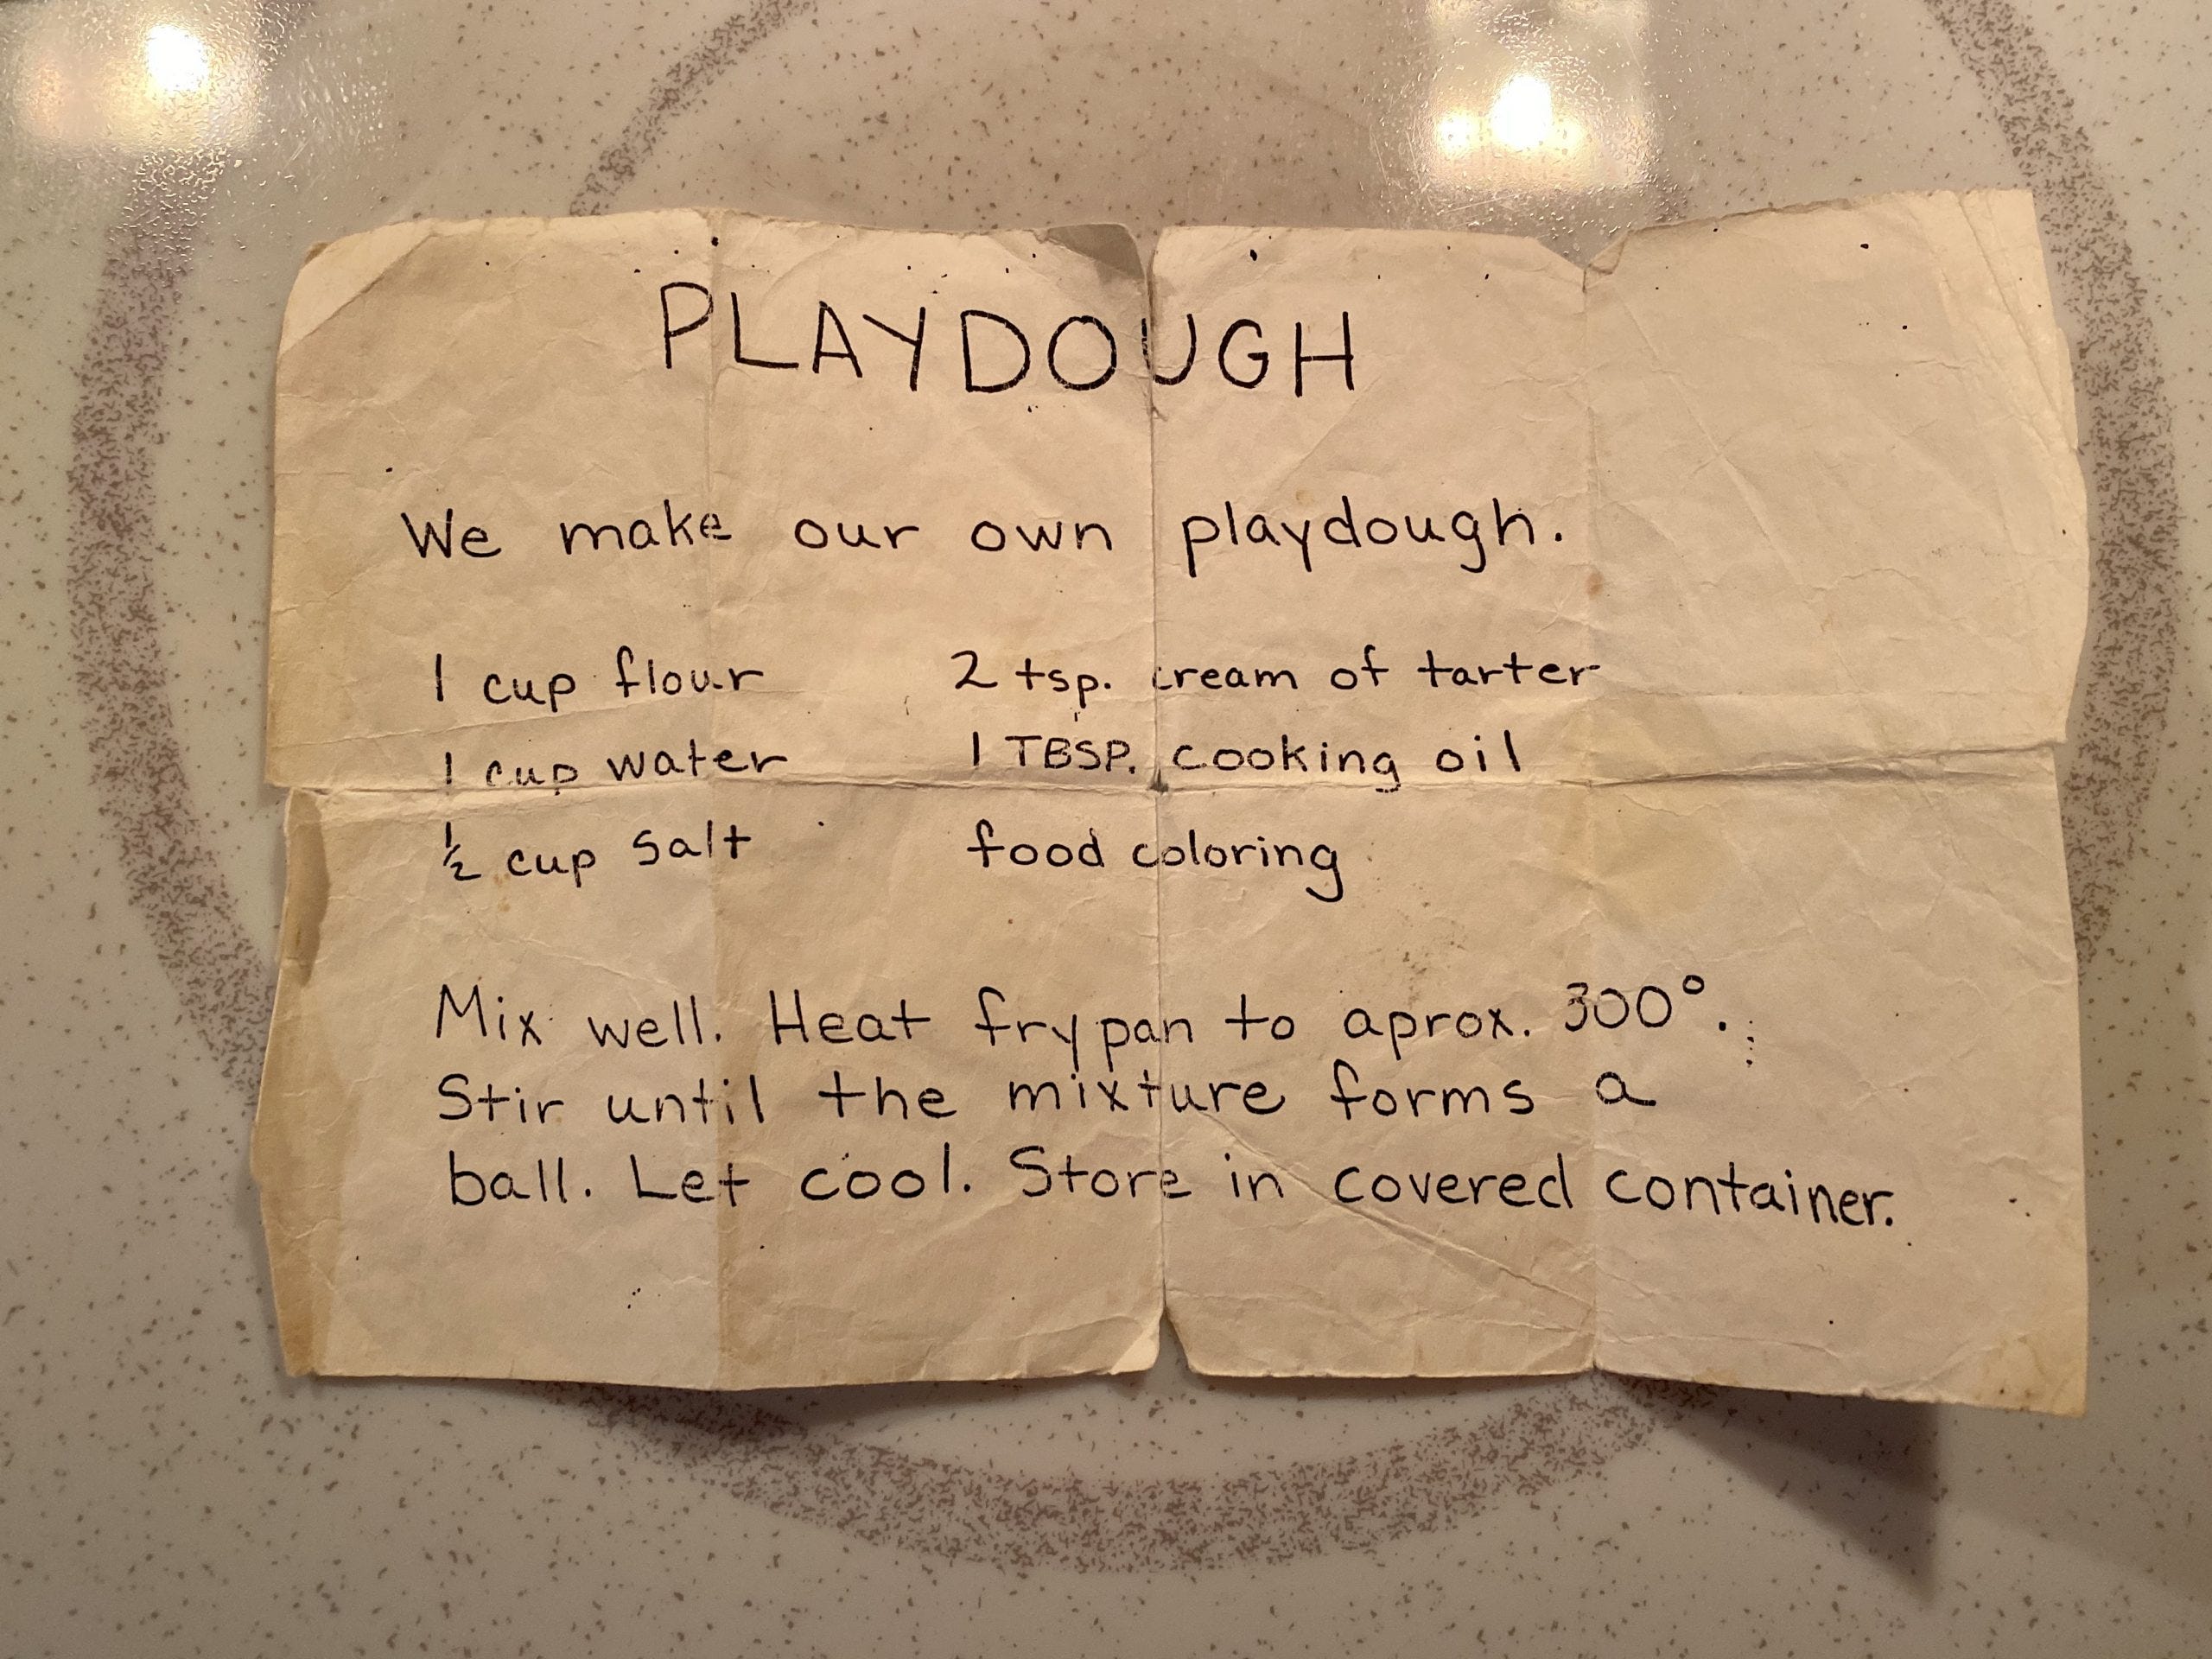 PLAYDOUGH
We make our own playdough.
1 cup flour 2 tsp. cream of tarter
1 cup water 1 TBSP. cooking oil
½ cup salt food coloring
Mix well. Heat frypan to aprox. 300°.
Stir until the mixture forms a
ball. Let cool. Store in covered container.